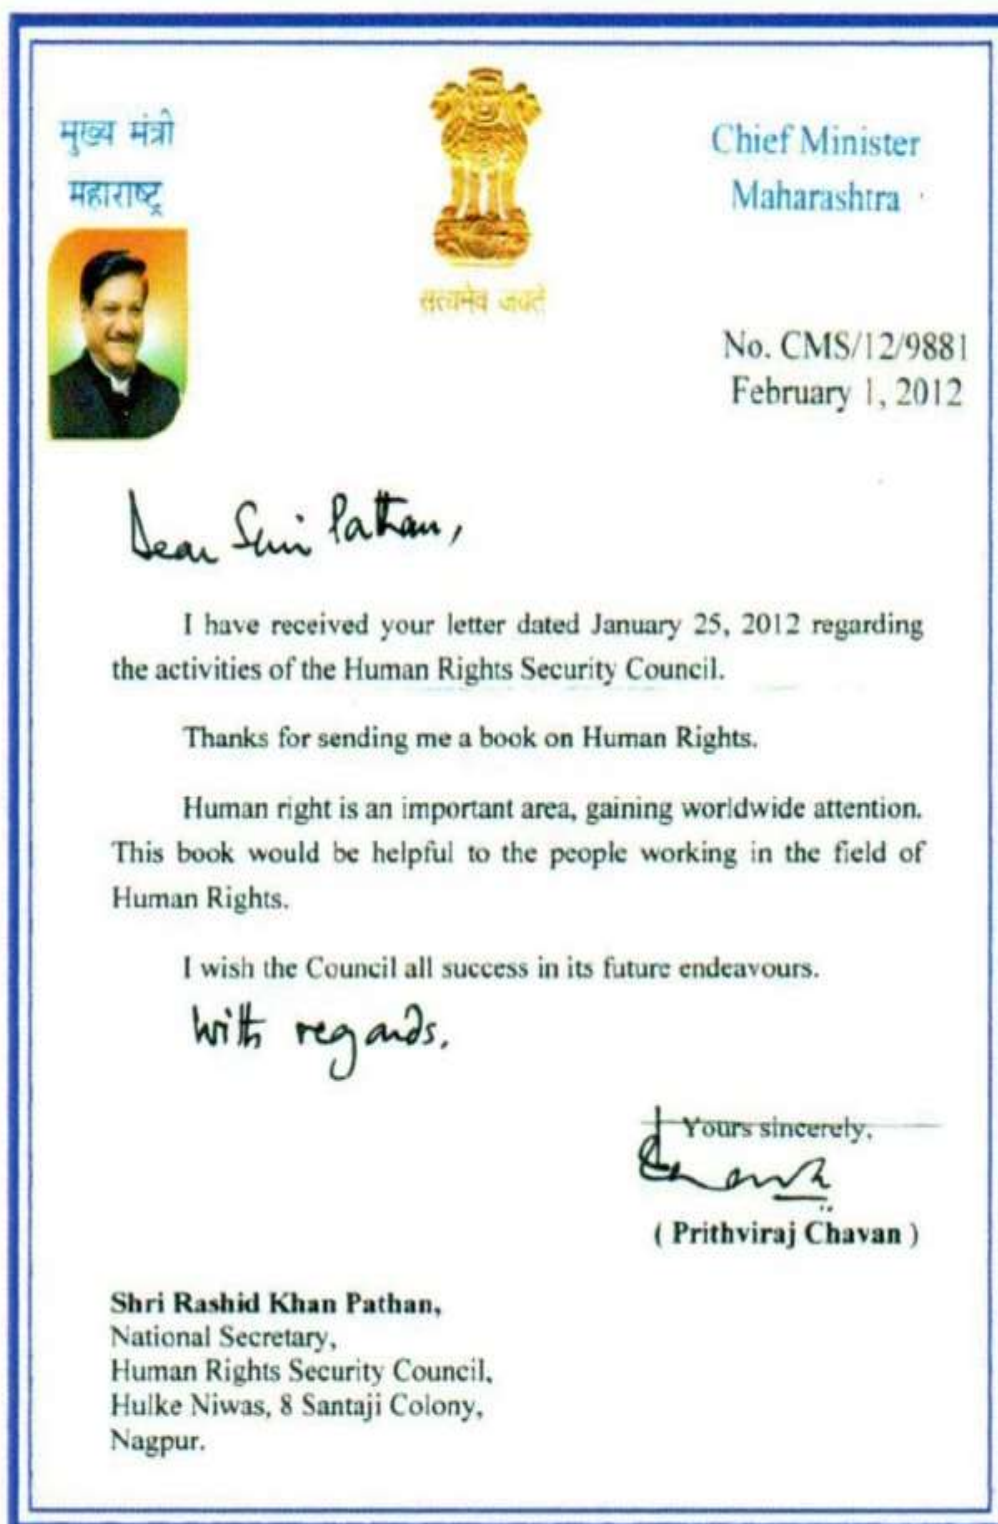 मुख्य मंत्री
महाराष्ट्र
सत्यमेव जयते
Chief Minister
Maharashtra
No. CMS/12/9881
February 1, 2012
Dear Shri Pathan,
I have received your letter dated January 25, 2012 regarding
the activities of the Human Rights Security Council.
Thanks for sending me a book on Human Rights.
Human right is an important area, gaining worldwide attention.
This book would be helpful to the people working in the field of
Human Rights.
I wish the Council all success in its future endeavours.
With regards.
Yours sincerely,
( Prithviraj Chavan )
Shri Rashid Khan Pathan,
National Secretary,
Human Rights Security Council,
Hulke Niwas, 8 Santaji Colony,
Nagpur.